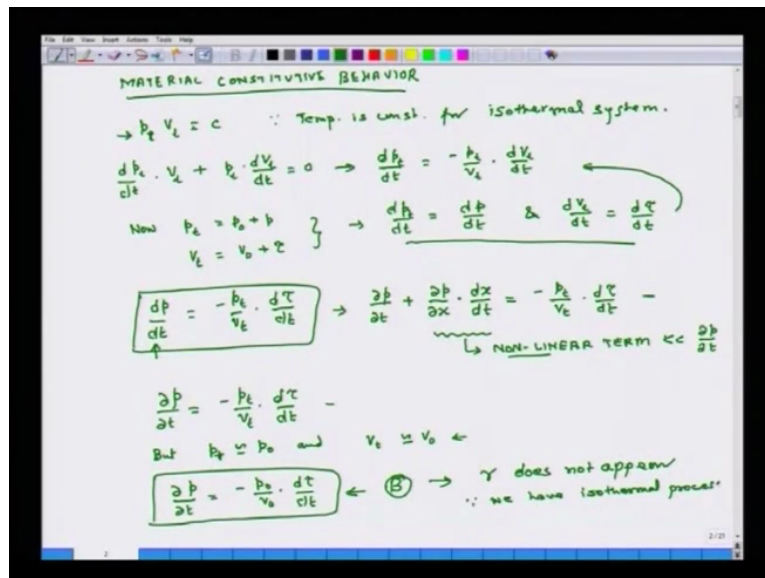 File Edit View Insert Actions Tools Help
MATERIAL CONSTITUTIVE BEHAVIOR
→ p_t V_t = c ∵ Temp. is const. for isothermal system.
dp_t/dt · V_t + p_t · dV_t/dt = 0 → dp_t/dt = -p_t/V_t · dV_t/dt
Now p_t = p_0 + p } → dp_t/dt = dp/dt & dV_t/dt = dτ/dt
V_t = V_0 + τ
dp/dt = -p_t/V_t · dτ/dt → ∂p/∂t + ∂p/∂x · dx/dt = -p_t/V_t · dτ/dt -
↳ NON-LINEAR TERM << ∂p/∂t
∂p/∂t = -p_t/V_t · dτ/dt -
But p_t ≃ p_0 and V_t ≃ V_0 ←
∂p/∂t = -p_0/V_0 · dτ/dt ← B → γ does not appear
∵ we have isothermal process
2/21
2